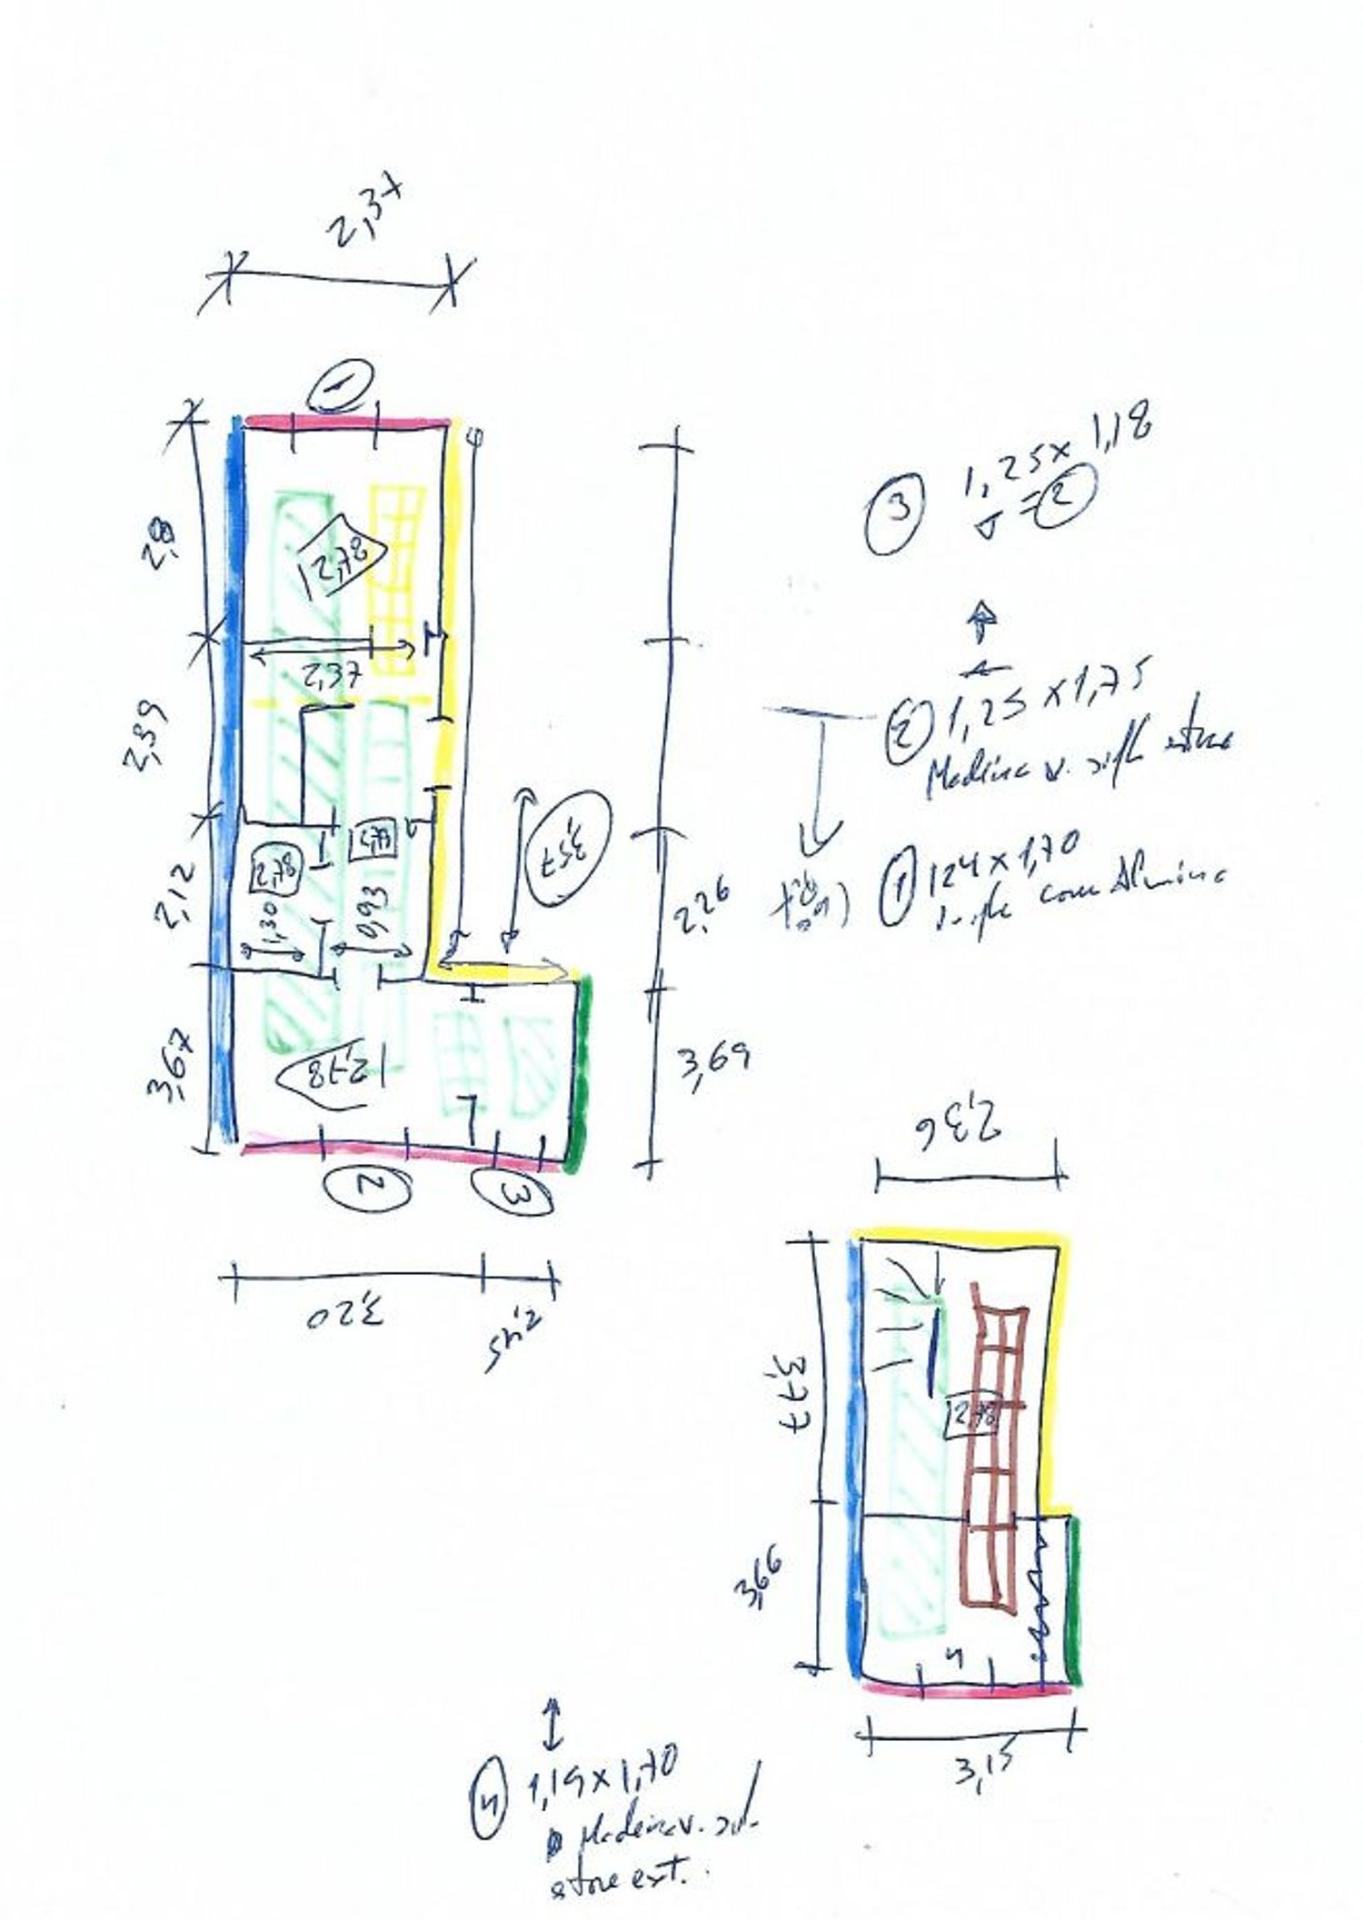 2,37
1
2,8
2,78
2,37
2,39
2,12
1,30
0,93
3,57
2,26
3,67
2,78
3,69
2
3
3,20
2,45
3 1,25 x 1,18
= 2
2 1,25 x 1,75
Madeira v.
1 124 x 1,70
com
2,36
3,77
2,78
3,66
4
3,15
4 1,19 x 1,70
Madeira v.
store ext.